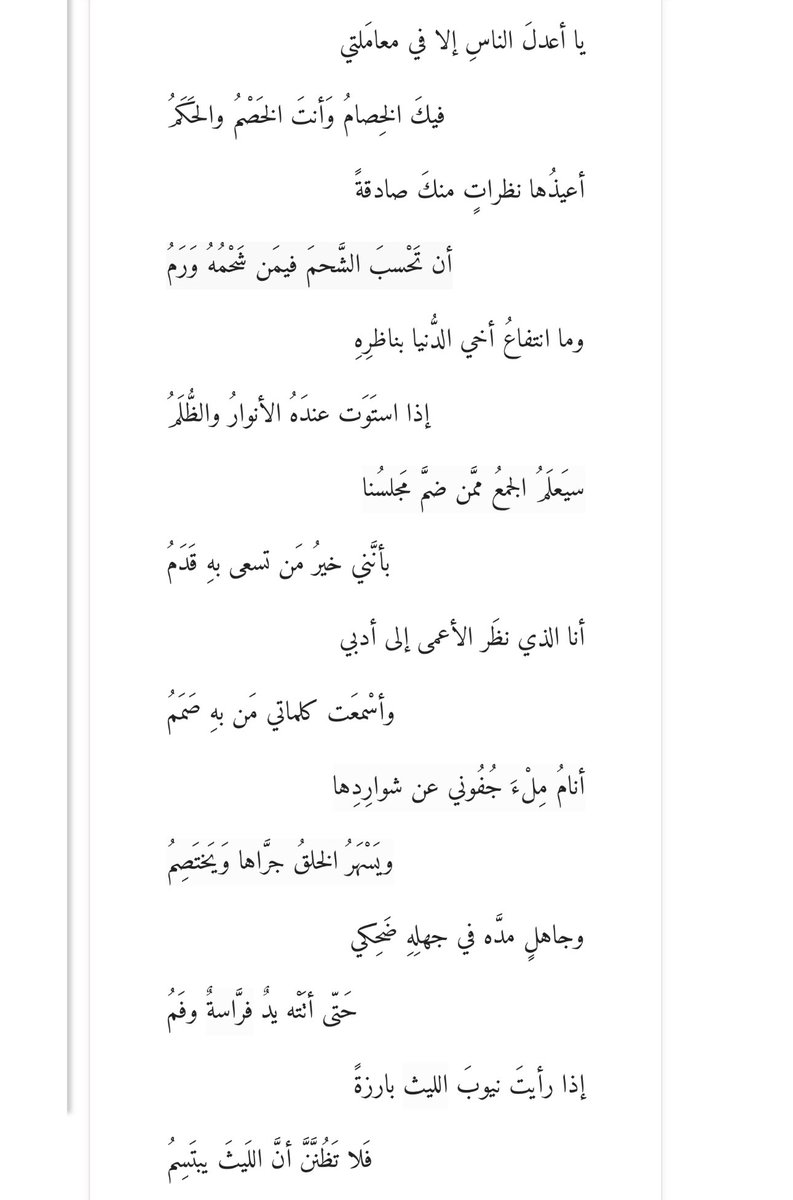 يا أعدلَ الناسِ إلا في معامَلتي
فيكَ الخِصامُ وَأنتَ الخَصْمُ والحَكَمُ
أعيذُها نظراتٍ منكَ صادقةً
أن تَحْسبَ الشَّحمَ فيمَن شَحْمُهُ وَرَمُ
وما انتفاعُ أخي الدُّنيا بناظرِهِ
إذا استَوَت عندَهُ الأنوارُ والظُّلَمُ
سيَعلَمُ الجمعُ ممَّن ضمَّ مَجلسُنا
بأنَّني خيرُ مَن تسعى بهِ قَدَمُ
أنا الذي نظَر الأعمى إلى أدبي
وأسْمعَت كلماتي مَن بهِ صَمَمُ
أنامُ مِلْءَ جُفُوني عن شوارِدِها
ويَسْهَرُ الخلقُ جرَّاها وَيَختَصِمُ
وجاهلٍ مدَّه في جهلِهِ ضَحِكي
حَتّى أتَتْه يدٌ فرَّاسةٌ وفَمُ
إذا رأيتَ نيوبَ الليث بارزةً
فَلا تَظُنَّنَّ أنَّ اللَيثَ يبتَسِمُ